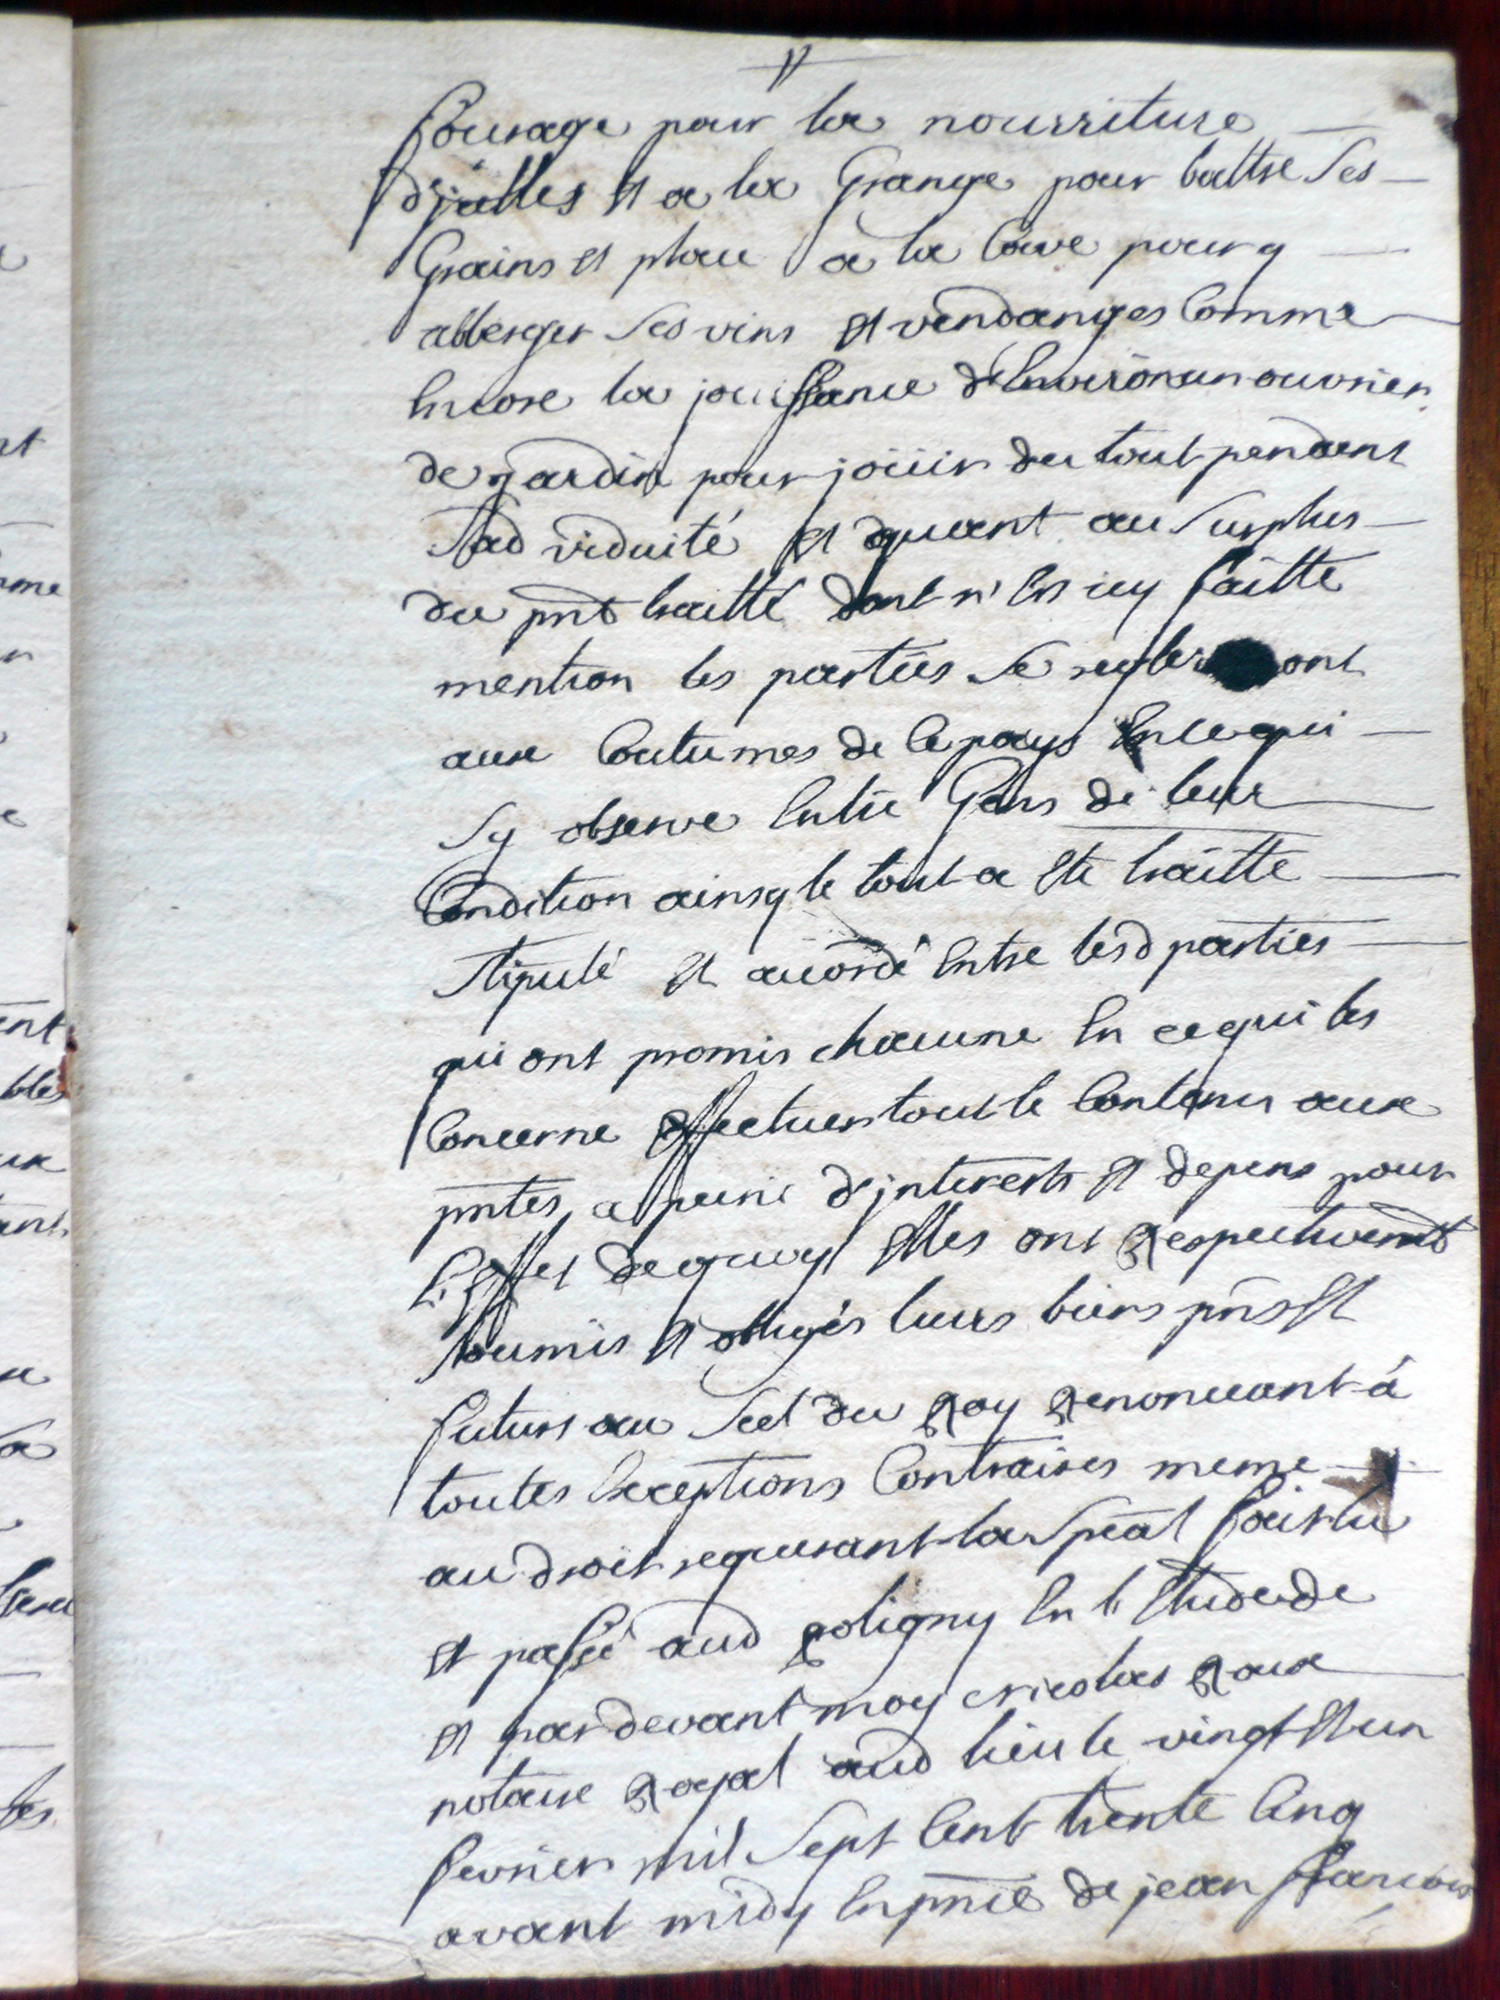 fourage pour la nourriture
d'jcelles et a la Grange pour battre ses
Grains et place a la Cave pour y
abberger ses vins et vendanges Comme
Encore la jouissance d'Environ un ouvrier
de jardin pour joüir du tout pendent
Sad viduité et quant au surplus
du pnt traitté dont n'Est icy faitte
mention les parties se regleront
aux Coutumes de Ce pays En ce qui
sy observe Entre Gens de leur
Condition ainsy le tout a Ete traitte
stipulé et acordé Entre lesd parties
qui ont promis chacune En ce qui les
Concerne effectuer tout le Contenu aux
pntes a peine d'jnterests et depens pour
L'effet de quoy Elles ont Respectivemt
soumis et obligés leurs biens pns et
futurs au scel du Roy Renonceant á
toutes Exceptions Contraires meme
au droit requerant la speal fait lu
et passé aud poligny En l'Etude de
et par devant moy Nicolas Roux
notaire Royal aud lieu le vingt et un
fevrier mil sept Cent trente Cinq
avant midy En pnce de jean francois